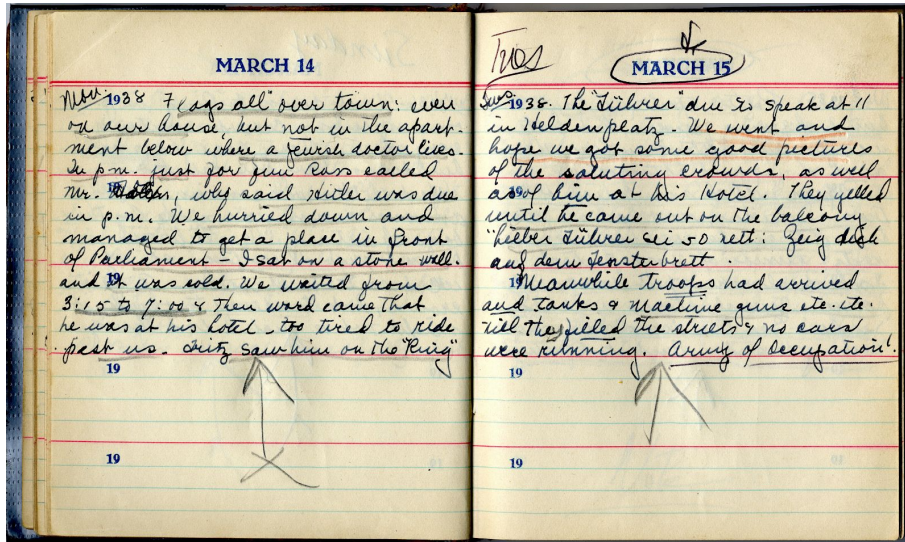 MARCH 14
Mon. 1938 Flags all over town: even
on our house, but not in the apart-
ment below where a Jewish doctor lives.
In p.m. just for fun Ross called
Mr. who said Hitler was due
in p.m. We hurried down and
managed to get a place in front
of Parliament - I sat on a stone wall.
and it was cold. We waited from
19
3:15 to 7:00 & then word came that
he was at his hotel - too tired to ride
past us. Fritz saw him on the "Ring"
19
19
Tues
MARCH 15
1938. The "Führer" due to speak at 11
in Heldenplatz. We went and
hope we got some good pictures
of the saluting crowds, as well
19 as of him at his Hotel. They yelled
until he came out on the balcony
"Lieber Führer sei so nett: Zeig dich
auf dem Fensterbrett.
19 Meanwhile troops had arrived
and tanks & machine guns etc. etc.
till they filled the streets & no cars
were running. Army of Occupation!
19
19